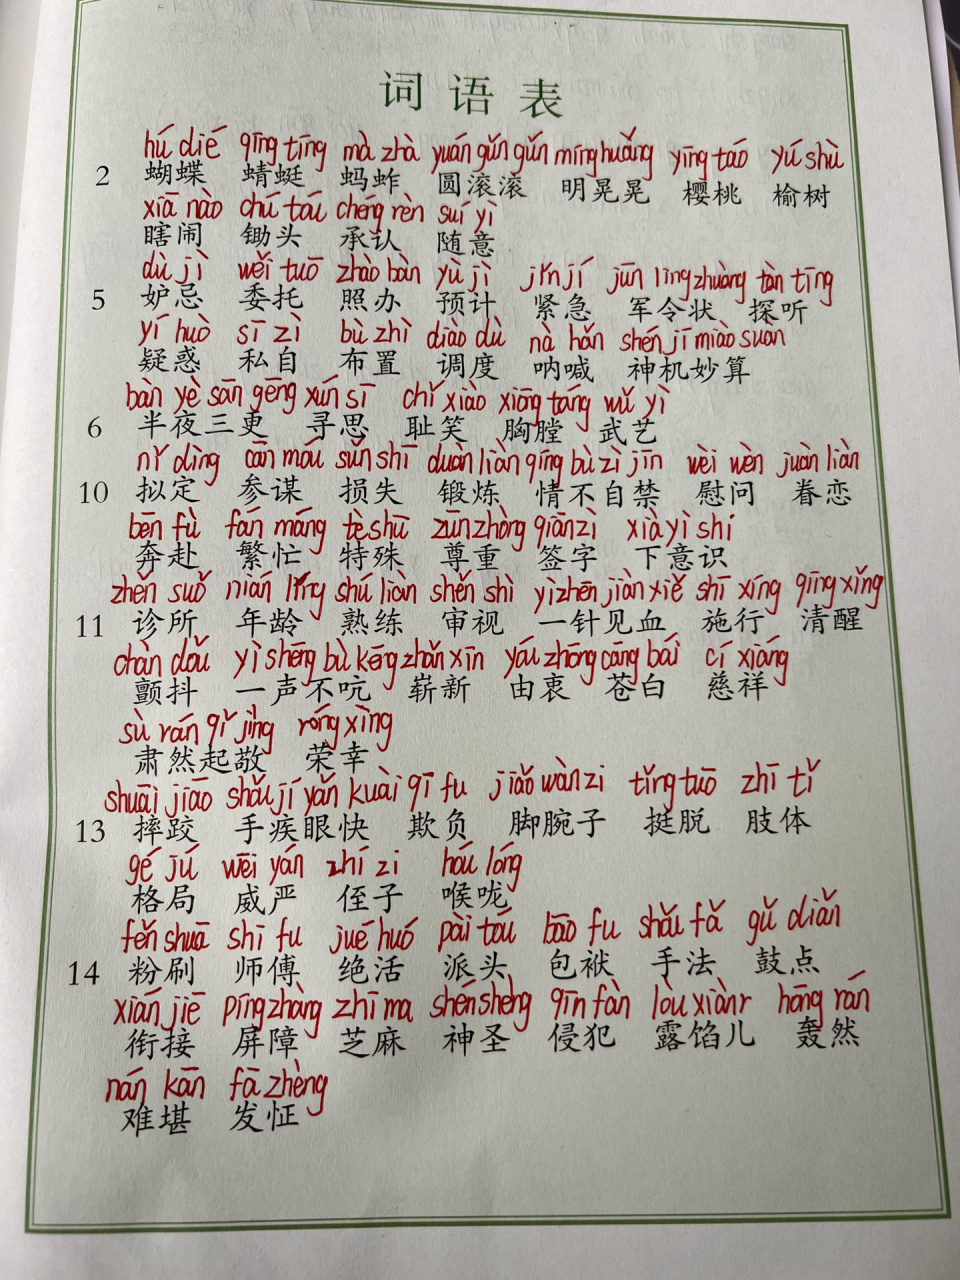 词语表
hú dié qīng tīng mà zhà yuán gǔn gǔn míng huǎng yīng táo yú shù
2 蝴蝶 蜻蜓 蚂蚱 圆滚滚 明晃晃 樱桃 榆树
xiā nào chú tóu chéng rèn suí yì
瞎闹 锄头 承认 随意
dù jì wěi tuō zhào bàn yù jì jǐn jí jūn lìng zhuàng tàn tīng
5 妒忌 委托 照办 预计 紧急 军令状 探听
yí huò sī zì bù zhì diào dù nà hǎn shén jī miào suàn
疑惑 私自 布置 调度 呐喊 神机妙算
bàn yè sān gēng xún sī chǐ xiào xiōng táng wǔ yì
6 半夜三更 寻思 耻笑 胸膛 武艺
nǐ dìng cān móu sǔn shī duàn liàn qíng bù zì jīn wèi wèn juàn liàn
10 拟定 参谋 损失 锻炼 情不自禁 慰问 眷恋
bēn fù fán máng tè shū zūn zhòng qiān zì xià yì shí
奔赴 繁忙 特殊 尊重 签字 下意识
zhěn suǒ nián líng shú liàn shěn shì yì zhēn jiàn xiě shī xíng qīng xǐng
11 诊所 年龄 熟练 审视 一针见血 施行 清醒
chàn dǒu yì shēng bù kēng zhǎn xīn yóu zhōng cāng bái cí xiáng
颤抖 一声不吭 崭新 由衷 苍白 慈祥
sù rán qǐ jìng róng xìng
肃然起敬 荣幸
shuāi jiāo shǒu jí yǎn kuài qī fu jiǎo wàn zi tǐng tuō zhī tǐ
13 摔跤 手疾眼快 欺负 脚腕子 挺脱 肢体
gé jú wēi yán zhí zi hóu lóng
格局 威严 侄子 喉咙
fěn shuā shī fu jué huó pài tóu bāo fu shǒu fǎ gǔ diǎn
14 粉刷 师傅 绝活 派头 包袱 手法 鼓点
xián jiē píng zhàng zhī ma shén shèng qīn fàn lòu xiànr hōng rán
衔接 屏障 芝麻 神圣 侵犯 露馅儿 轰然
nán kān fā zhèng
难堪 发怔